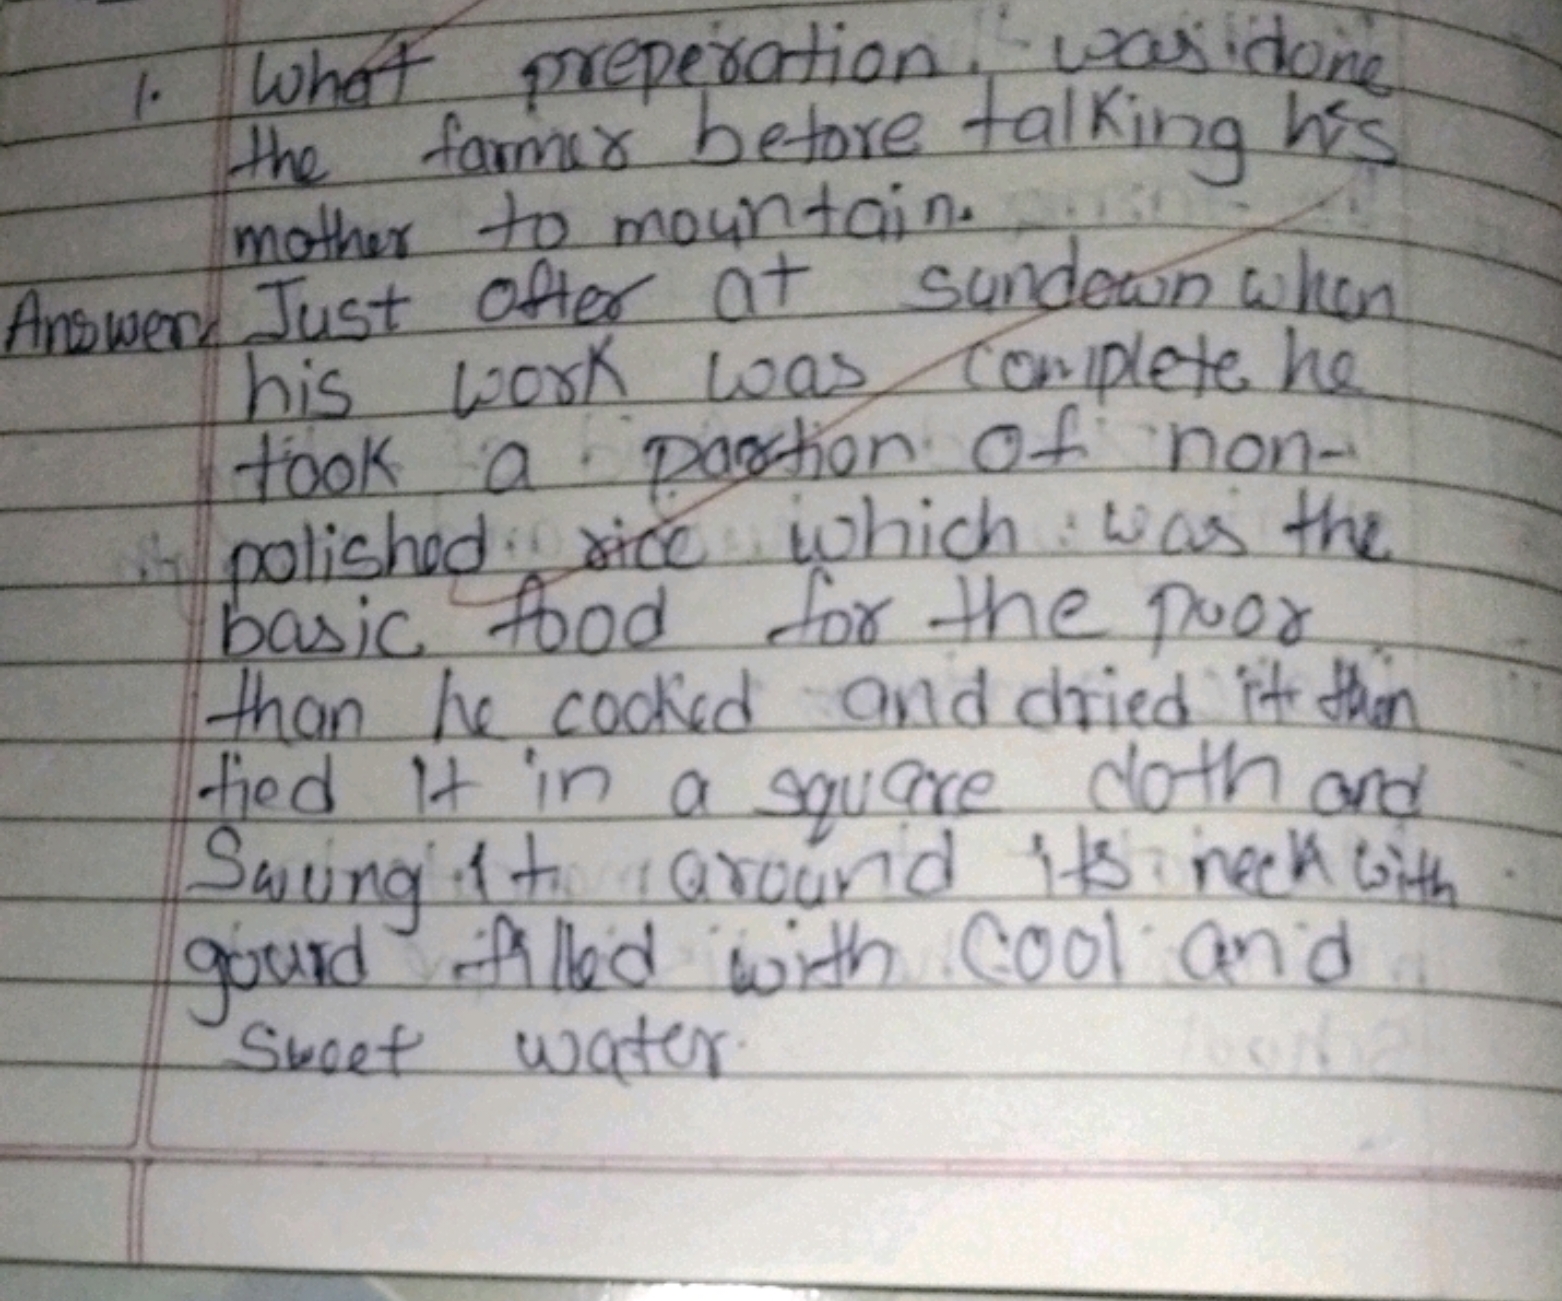 1. What preperation. was done
the farmer before talking his
mother to mountain.
Answer, Just after at sundown when
his work was complete he
took a portion of non-
polished rice which was the
basic food for the poor
than he cooked and dried it then
tied it in a square cloth and
Swung it around its neck with
gourd filled with Cool and
Sweet water.